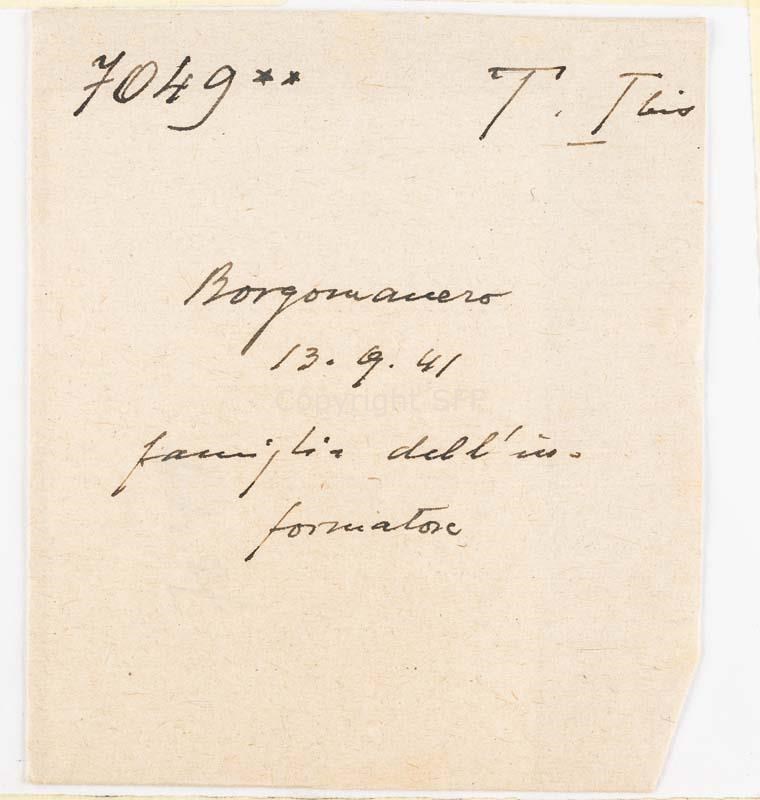 7049** T. I bis
Borgomanero
13.9.41
Copyright SFP
famiglia dell'in-
formatore